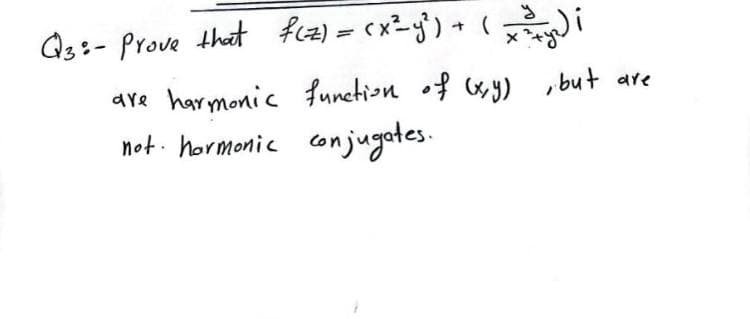 Q3:- Prove that f(z) = (x²-y²) + (y/x²+y²)i
are harmonic function of (x,y) , but are
not. harmonic conjugates.